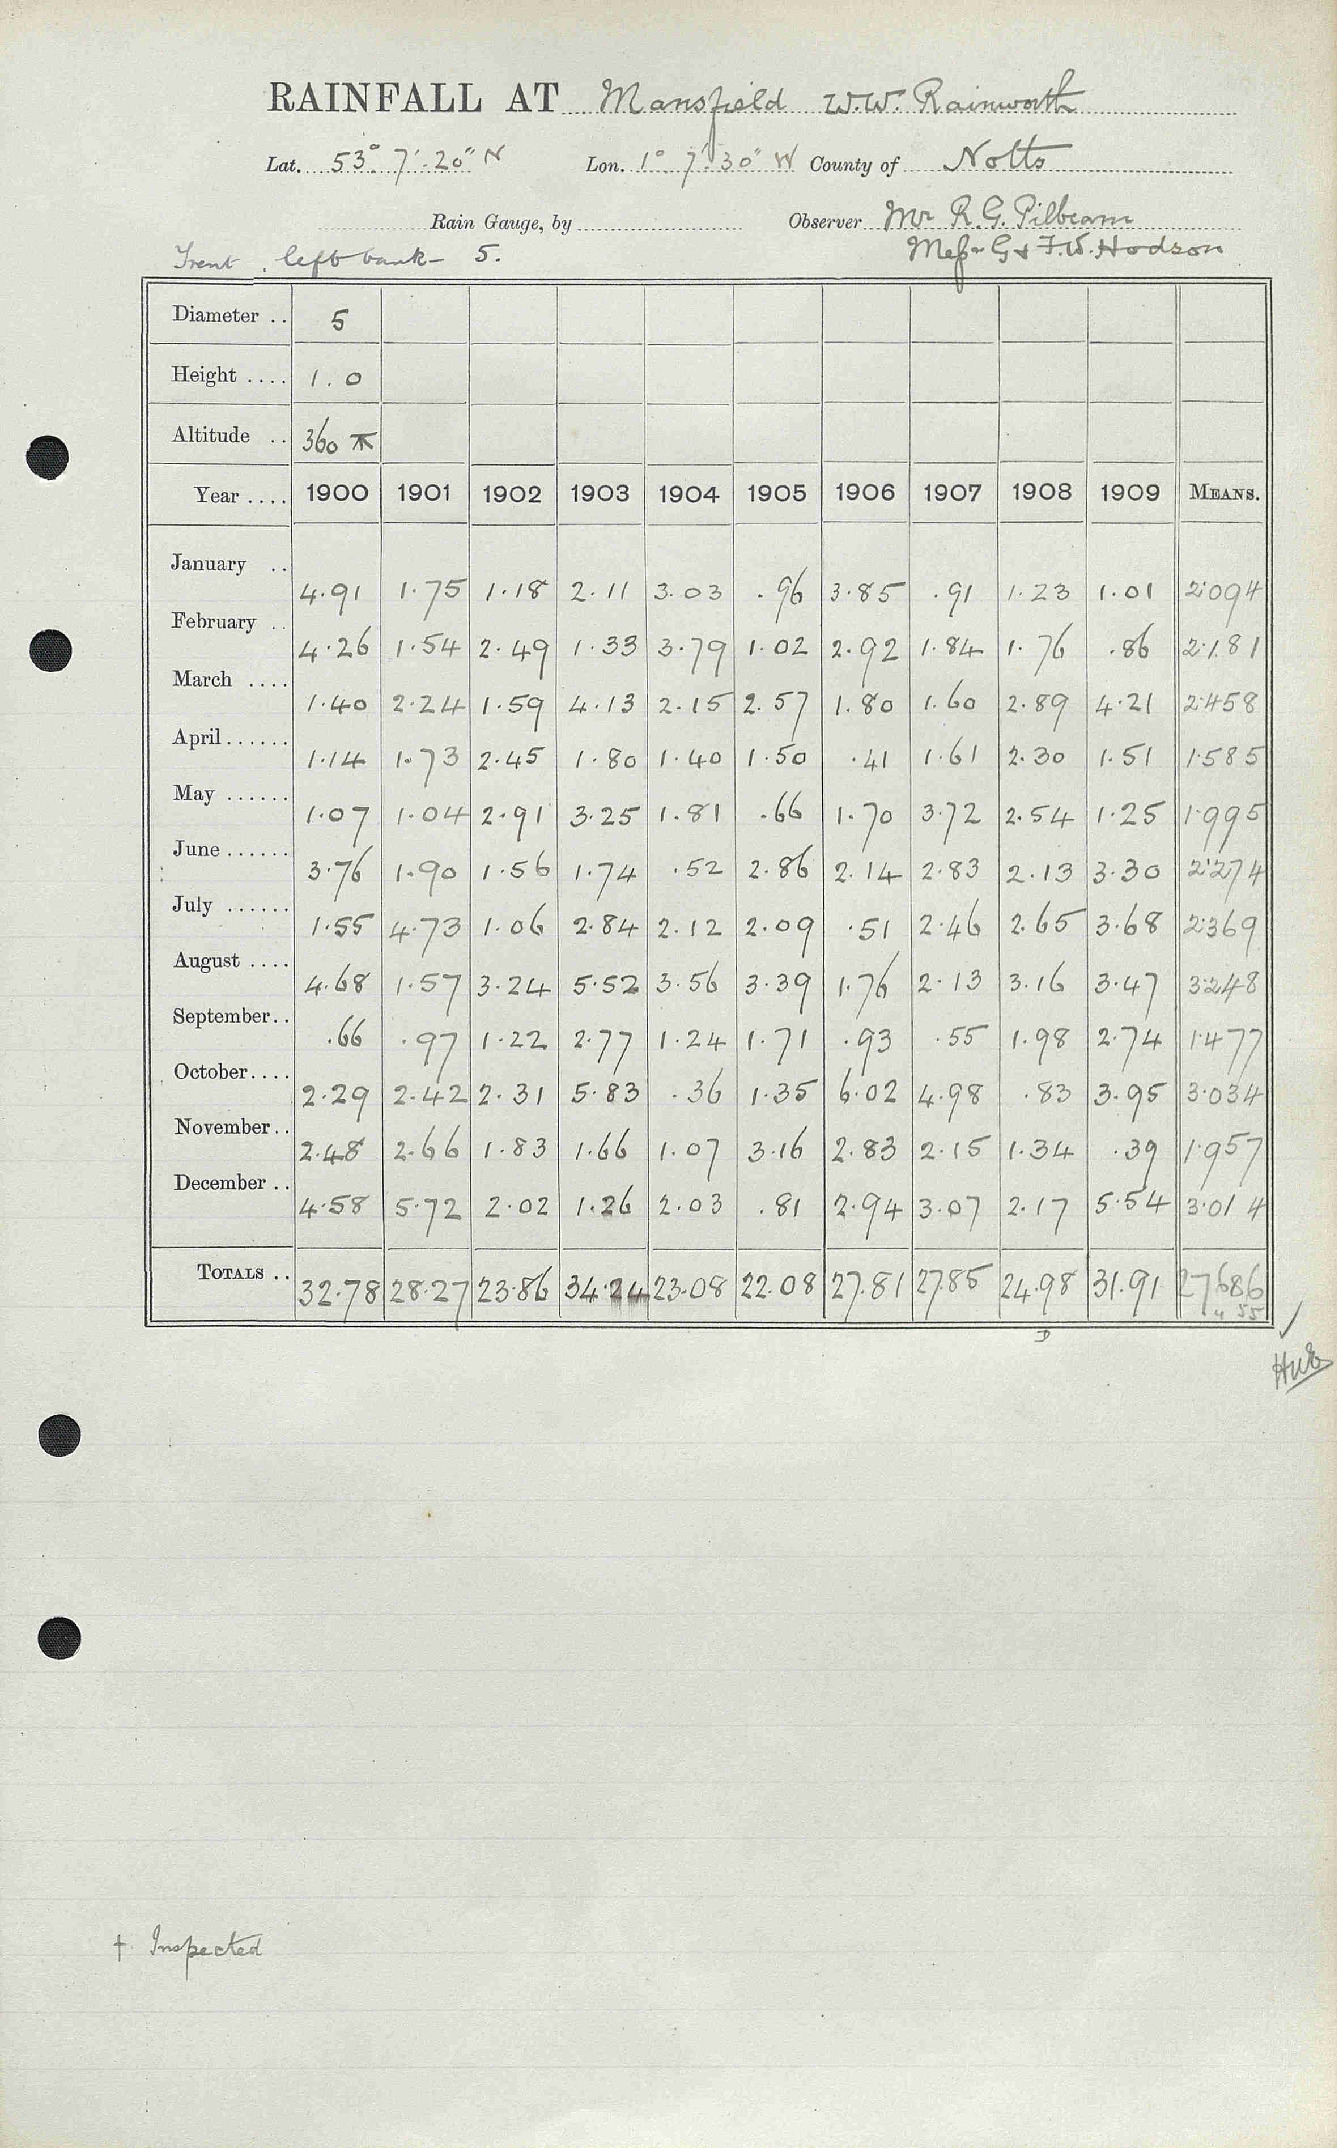 RAINFALL AT Mansfield W.W. Rainworth
Lat. 53° 7' 20" N Lon. 1° 7' 30" W County of Notts
Rain Gauge, by Observer Mr R. G. Pilbeam
Trent, left bank - 5. Messrs G & F.W. Hodson
Diameter .. 5
Height .... 1.0
Altitude .. 360
Year .... 1900 1901 1902 1903 1904 1905 1906 1907 1908 1909 MEANS.
January .. 4.91 1.75 1.18 2.11 3.03 .96 3.85 .91 1.23 1.01 2.094
February .. 4.26 1.54 2.49 1.33 3.79 1.02 2.92 1.84 1.76 .86 2.181
March .... 1.40 2.24 1.59 4.13 2.15 2.57 1.80 1.60 2.89 4.21 2.458
April...... 1.14 1.73 2.45 1.80 1.40 1.50 .41 1.61 2.30 1.51 1.585
May ...... 1.07 1.04 2.91 3.25 1.81 .66 1.70 3.72 2.54 1.25 1.995
June...... 3.76 1.90 1.56 1.74 .52 2.86 2.14 2.83 2.13 3.30 2.274
July ...... 1.55 4.73 1.06 2.84 2.12 2.09 .51 2.46 2.65 3.68 2.369
August .... 4.68 1.57 3.24 5.52 3.56 3.39 1.76 2.13 3.16 3.47 3.248
September.. .66 .97 1.22 2.77 1.24 1.71 .93 .55 1.98 2.74 1.477
October.... 2.29 2.42 2.31 5.83 .36 1.35 6.02 4.98 .83 3.95 3.034
November.. 2.48 2.66 1.83 1.66 1.07 3.16 2.83 2.15 1.34 .39 1.957
December .. 4.58 5.72 2.02 1.26 2.03 .81 2.94 3.07 2.17 5.54 3.014
TOTALS .. 32.78 28.27 23.86 34.24 23.08 22.08 27.81 27.85 24.98 31.91 27.686
D
† Inspected